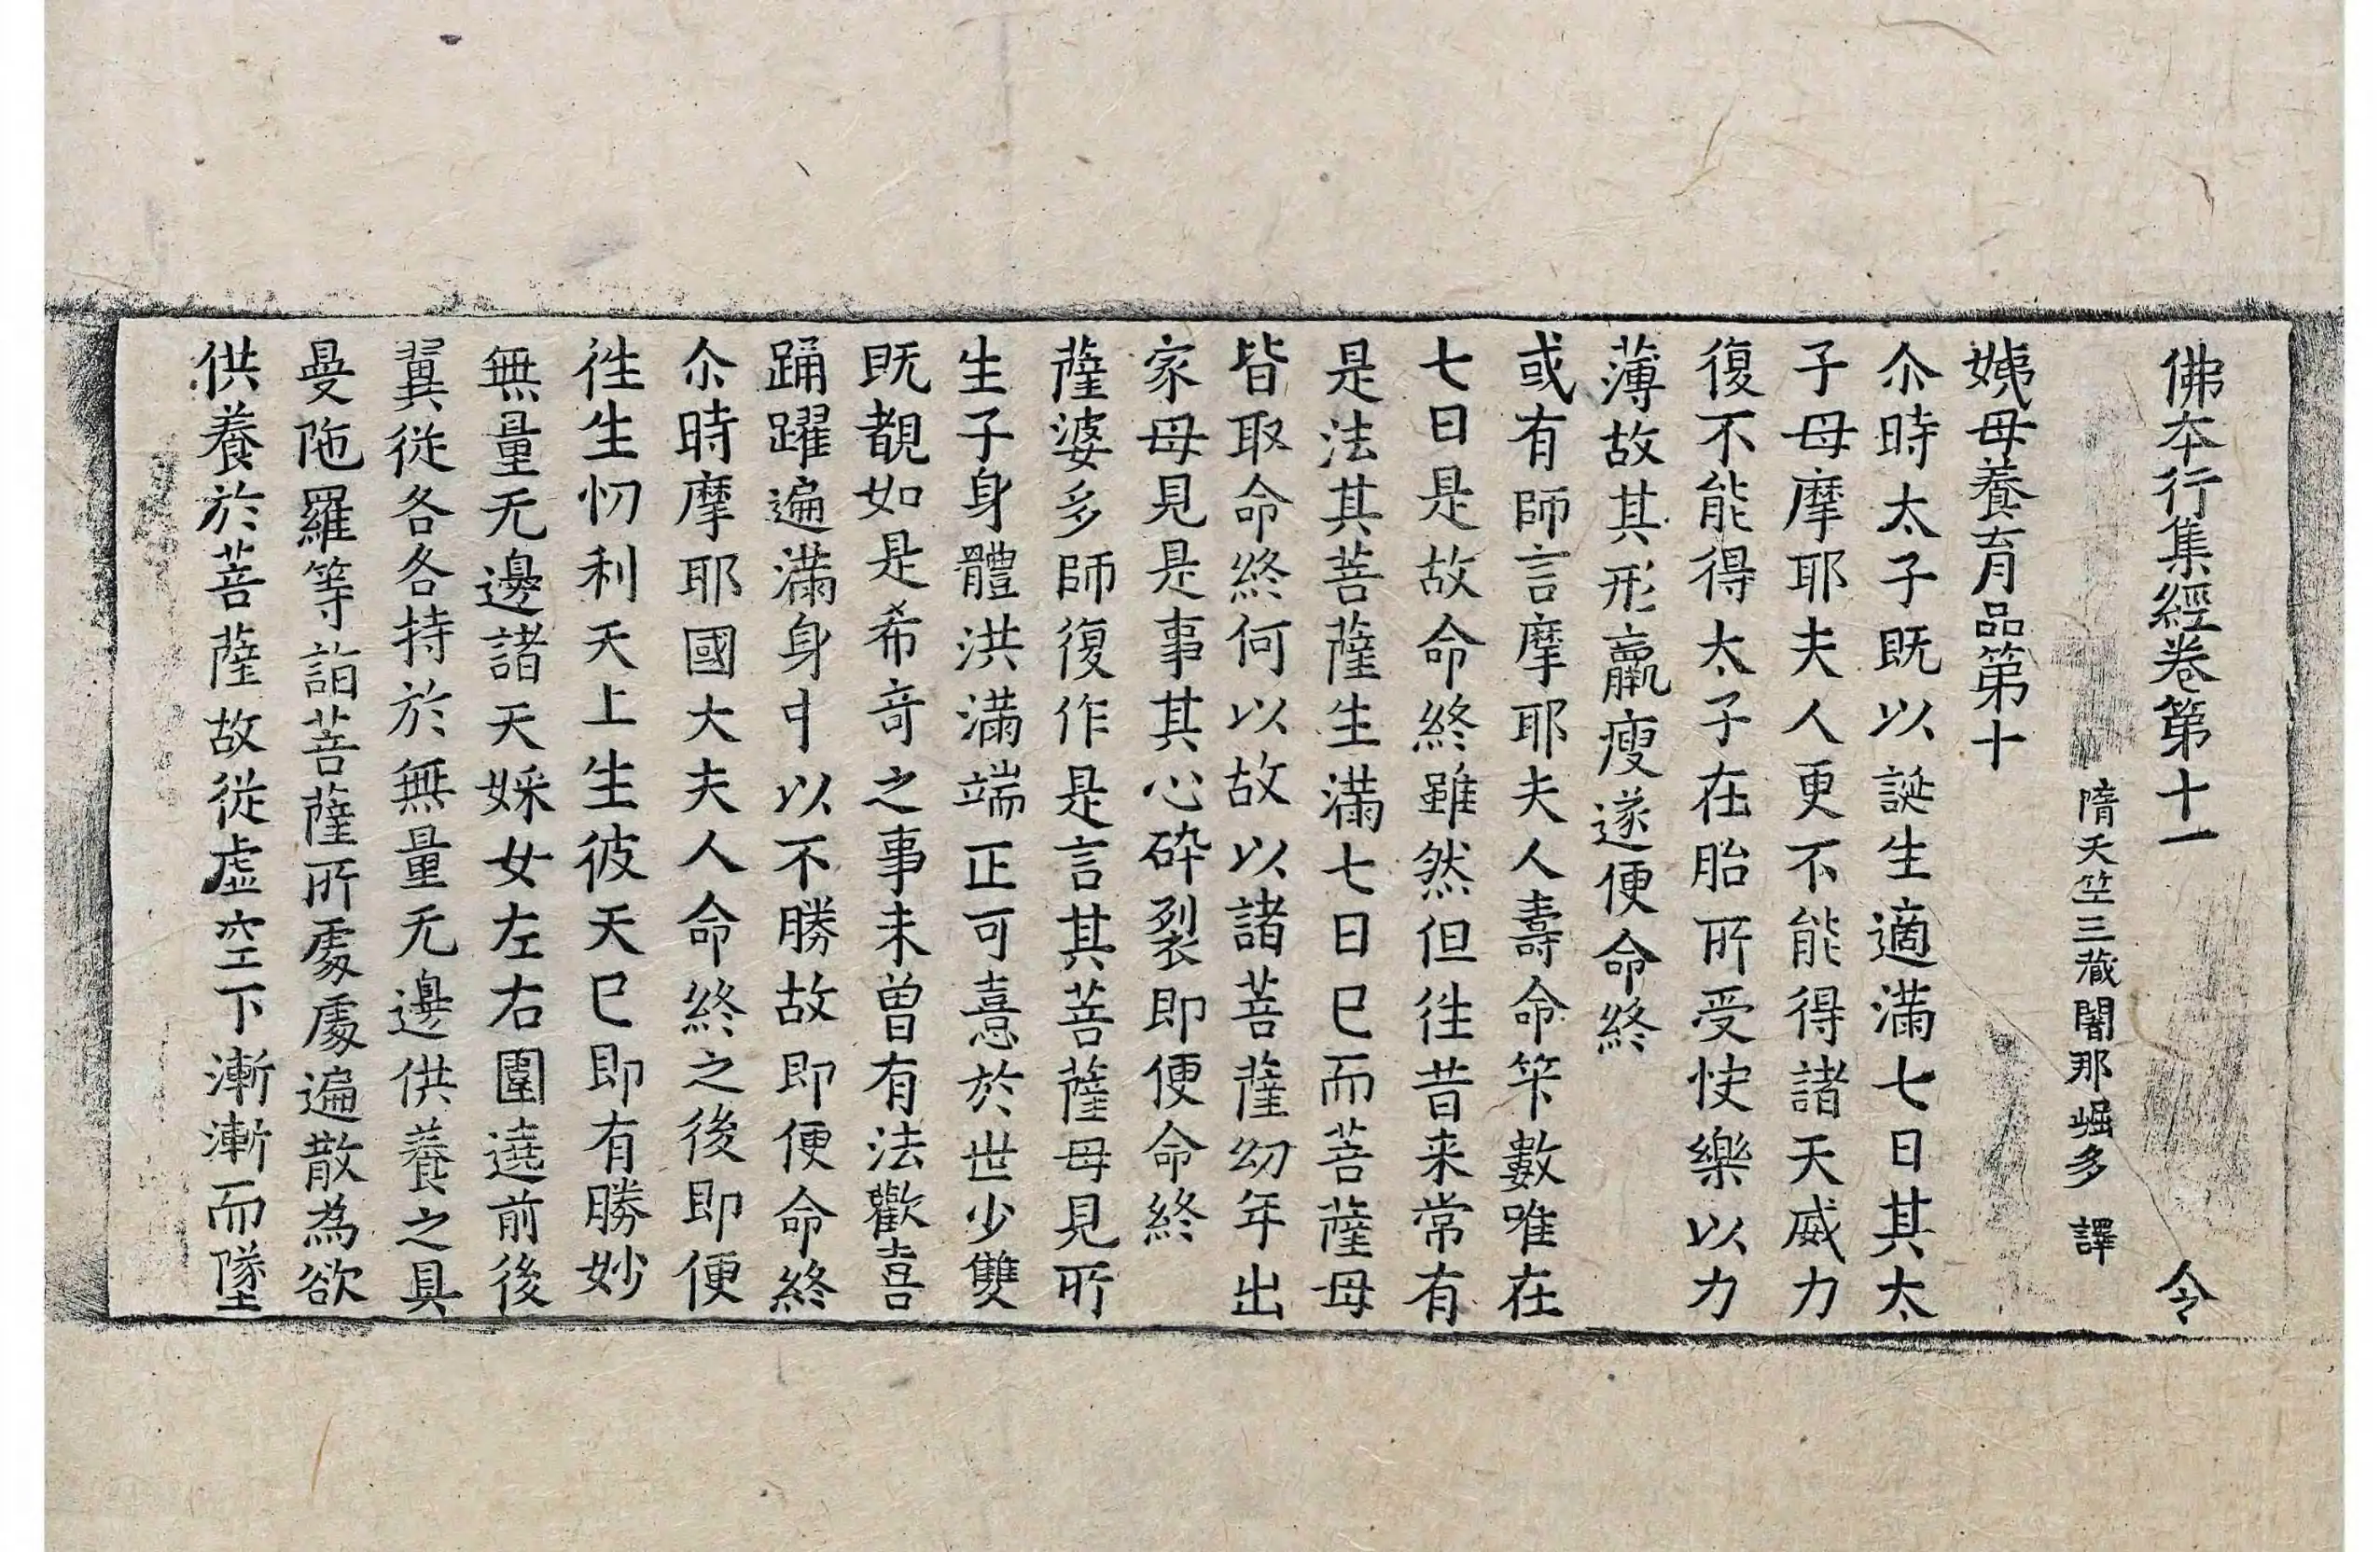 佛本行集經卷第十一 令
隋天竺三藏闍那崛多 譯
姨母養育品第十
尒時太子既以誕生適滿七日其太
子母摩耶夫人更不能得諸天威力
復不能得太子在胎所受快樂以力
薄故其形羸瘦遂便命終
或有師言摩耶夫人壽命筭數唯在
七日是故命終雖然但徃昔来常有
是法其菩薩生滿七日已而菩薩母
皆取命終何以故以諸菩薩幼年出
家母見是事其心碎裂即便命終
薩婆多師復作是言其菩薩母見所
生子身體洪滿端正可憙於世少雙
既覩如是希竒之事未曾有法歡喜
踊躍遍滿身中以不勝故即便命終
尒時摩耶國大夫人命終之後即便
徃生忉利天上生彼天已即有勝妙
無量无邊諸天婇女左右圍遶前後
翼從各各持於無量无邊供養之具
曼陁羅等詣菩薩所處處遍散為欲
供養於菩薩故從虛空下漸漸而墜